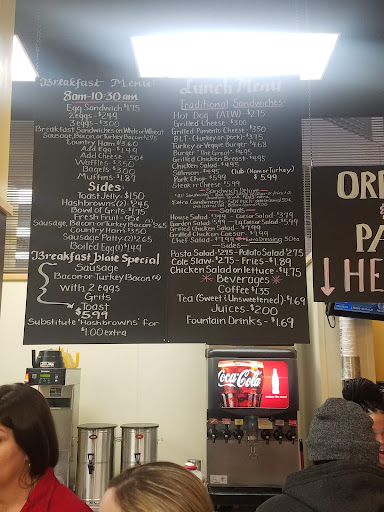 Breakfast Menu
8am-10:30am
Egg Sandwich $1.75
2 eggs - $2.49
3 eggs - $3.00
Breakfast Sandwiches on White or Wheat
Sausage, Bacon, or Turkey Bacon
Country Ham $3.60
Add Egg - $1.49
Add Cheese - 50¢
Waffles - $3.50
Bagels $3.00
Muffins $1.87
Sides:
Toast Jelly - $1.50
Hashbrowns (2) $2.45
Bowl of Grits - $1.75
Fresh Fruit - 95¢
Sausage, Bacon, or Turkey Bacon (2) $2.65
Country Ham $3.50
Sausage Patty (2) 2.65
Boiled Egg (1) $1.49
Breakfast Plate Special
Sausage
Bacon or Turkey Bacon (2)
with 2 eggs
Grits
Toast
$5.99
Substitute "Hashbrowns" For
$1.00 extra
Lunch Menu
Traditional Sandwiches
Hot Dog (ATW) - $2.75
Grilled Cheese - $3.00
Grilled Pimento Cheese - $3.50
BLT - (turkey or pork) - $3.75
Turkey or Veggie Burger - $4.63
Burger "The Great" - $4.95
Grilled Chicken Breast - $4.95
Chicken Salad - $4.95
Salmon - $4.95 Club (Ham or Turkey)
Pork Chop - $5.99 $5.99
Steak n' Cheese - $5.99
Sandwich Deluxe
Extra Condiments
Salads
House Salad - $3.99 Caesar Salad - $3.79
Garden Salad - $5.99 Lg Caesar Salad - $5.99
Grilled Chicken Salad - $7.99
Grilled Chicken Caesar - $7.99
Chef Salad - $7.99 Extra Dressing - 50¢
Pasta Salad - $2.75 - Potato Salad $2.75
Cole Slaw - $2.75 - Fries - $1.89
Chicken Salad on lettuce - $4.75
* Beverages *
Coffee $1.35
Tea (Sweet & Unsweetened) - $1.69
Juices - $2.00
Fountain Drinks - $1.69
OR
PA
HE
Coca-Cola